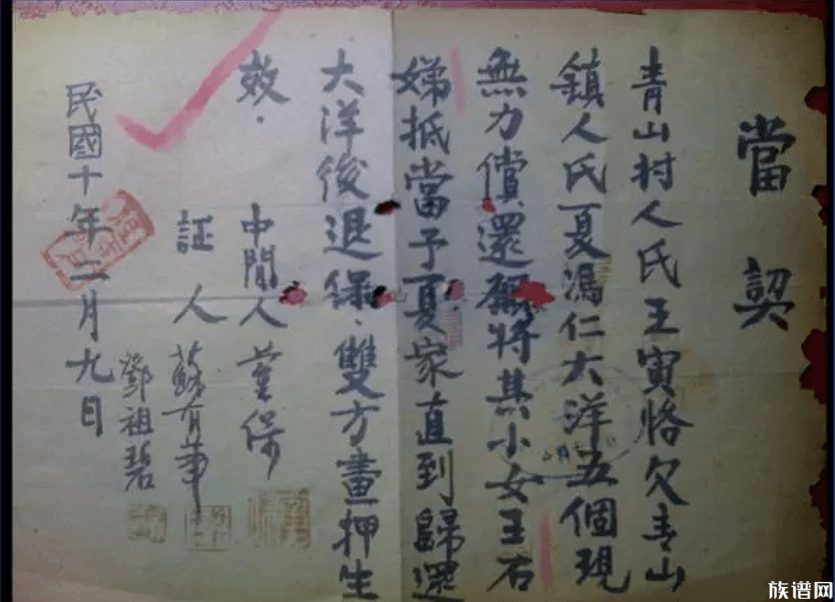 當契
青山村人氏王寅恪欠青山
鎮人氏夏馮仁大洋五個現
無力償還願將其小女王石
娣抵當予夏家直到歸還
大洋後退保．雙方畫押生
效．
中間人 董保
証人 蘇育華
鄧祖碧
民國十年二月九日
族谱网